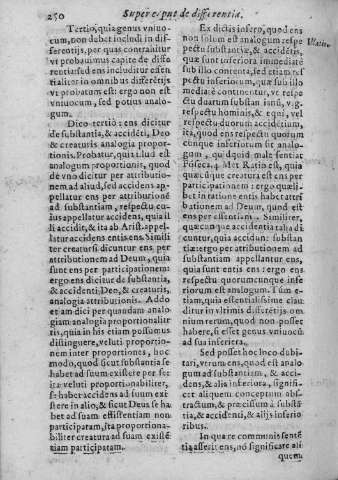 250 Super caput de differentia.
Tertio, quia genus vniuo-
cum, non debet includi in dif-
ferẽtijs, per quas contrahitur
vt probauimus capite de diffe
rentia: sed ens includitur essen
tialiter in omnibus differẽtijs
vt probatum est: ergo non est
vniuocum, sed potius analo-
gum.
Dico tertio: ens dicitur
de substantia, & accidẽti, Deo
& creaturis analogia propor-
tionis. Probatur, quia illud est
analogum proportionis, quod
de vno dicitur per attributio-
nem ad aliud, sed accidens ap-
pellatur ens per attributionẽ
ad substantiam, respectu cu-
ius appellatur accidens, quia il
li accidit, & ita ab Arist. appel-
latur accidens entis ens. Simili
ter creatura dicuntur ens per
attributionem ad Deum, quia
sunt ens per participationem:
ergo ens dicitur de substantia,
& accidenti, Deo, & creaturis,
analogia attributionis. Addo
et iam dici per quandam analo
giam analogia proportionalit
tis, quia in his etiam possumus
distinguere, veluti proportio-
nem inter proportiones, hoc
modo, quod sicut substantia se
habet ad suum existere per se:
ita veluti proportionabiliter,
se habet accidens ad suum exi
stere in alio, & sicut Deus se ha
bet ad suam existentiam non
participatam, ita proportiona-
biliter creatura ad suam existẽ
tiam participatam.
Ex dictis infero, quod ens
non solum est analogum respe
pectu substantiæ, & accidẽtis,
quæ sunt inferiora immediatè
sub illo contenta, sed etiam res
pectu inferiorum, quæ sub illo
mediatè continentur, vt respe-
ctu duarum substantiarũ, v. g.
respectu hominis, & equi, vel
respectu duorum accidẽtium,
ita, quod ens respectu quorum
cunque inferiorum sit analo-
gum, quidquid malè sentiat
Fõseca. 4. Met. Ratio est, quia
quæcũque creatura est ens per
participationem: ergo quæli-
bet in ratione entis habet attri
butionem ad Deum, quod est
ens per essentiam. Similiter,
quæcunque accidentia talia di
cuntur, quia accidun: substan
tiæ: ergo per attributionem ad
substantiam appellantur ens,
quia sunt entis ens: ergo ens
respectu quorumcunque infe
riorum est analogum. Tum e-
tiam, quia essentialissimè clau
ditur in vltimis differẽtijs om
nium rerum, quod non posset
habere, si esset genus vniuocũ
ad sua inferiora.
Sed posset hoc loco dubi-
tari, vtrum ens, quod est analo
gum ad substantiam, & acci-
dens, & alia inferiora, signifi-
cet aliquem conceptum abs-
tractum, & præcisum à substã
tia, & accidenti, & alijs inferio
ribus.
In qua re communis sentẽ
tia asserit ens, nõ significare ali
quem